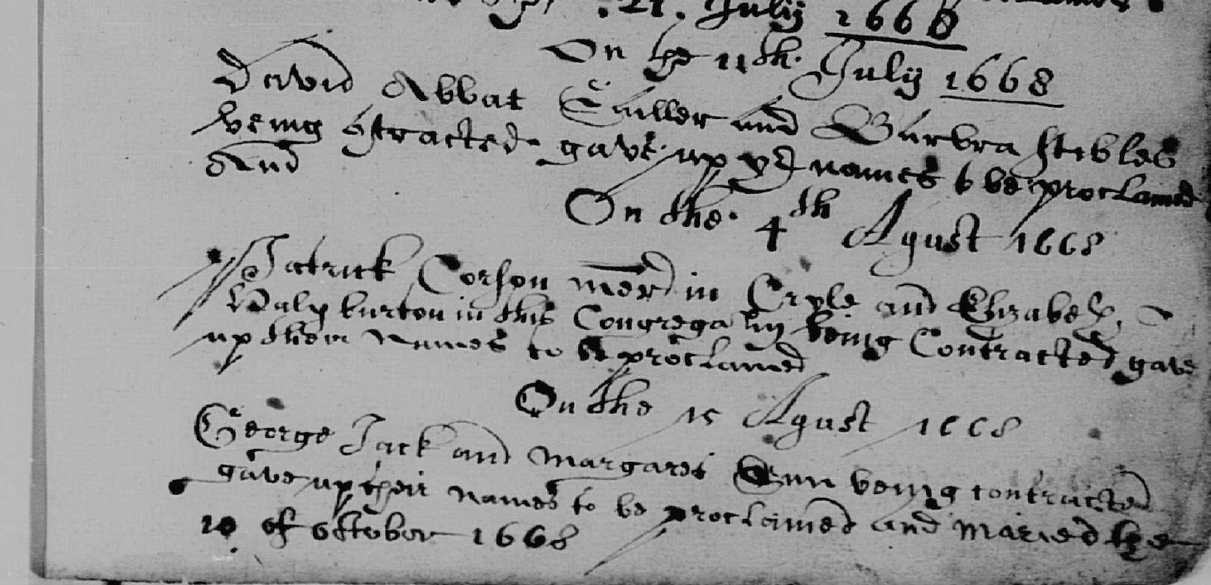 21. July 1668
On the 11th. July 1668
David Abbat and Barbra stebles
being gave up yr names to be proclamed
And
On the 4th Agust 1668
Patrick Corson mert in and Elizabeth
in this being Contracted gave
up them Names to be proclamed
On the 15 Agust 1668
George Jack and Margaret being contracted
gave up their names to be proclamed and maried the
10 of october 1668